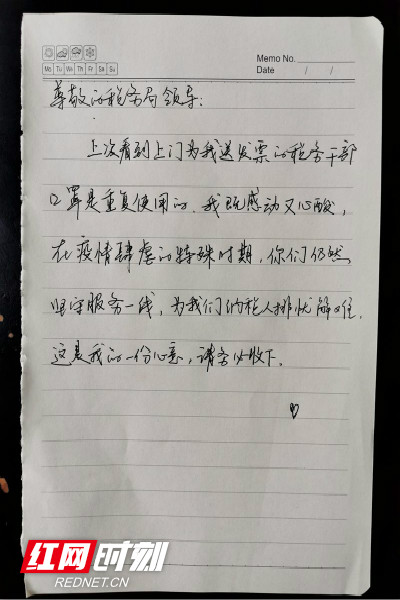 Memo No.
Mo Tu We Th Fr Sa Su
Date / /
尊敬的税务局领导：
上次看到上门为我送发票的税务干部
口罩是重复使用的，我既感动又心酸，
在疫情肆虐的特殊时期，你们仍然
坚守服务一线，为我们纳税人排忧解难，
这是我的一份心意，请务必收下。
红网时刻
REDNET.CN